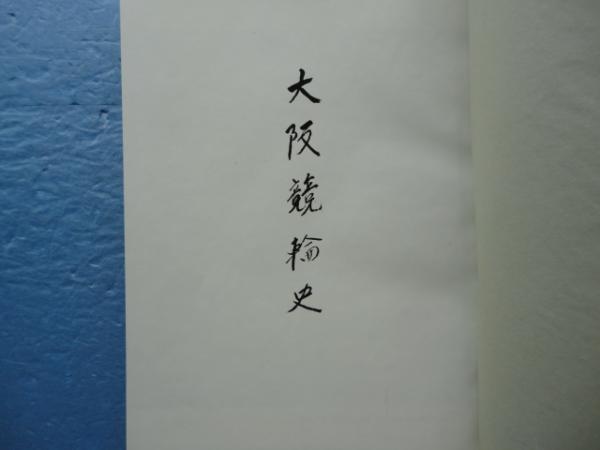 大阪競輪史